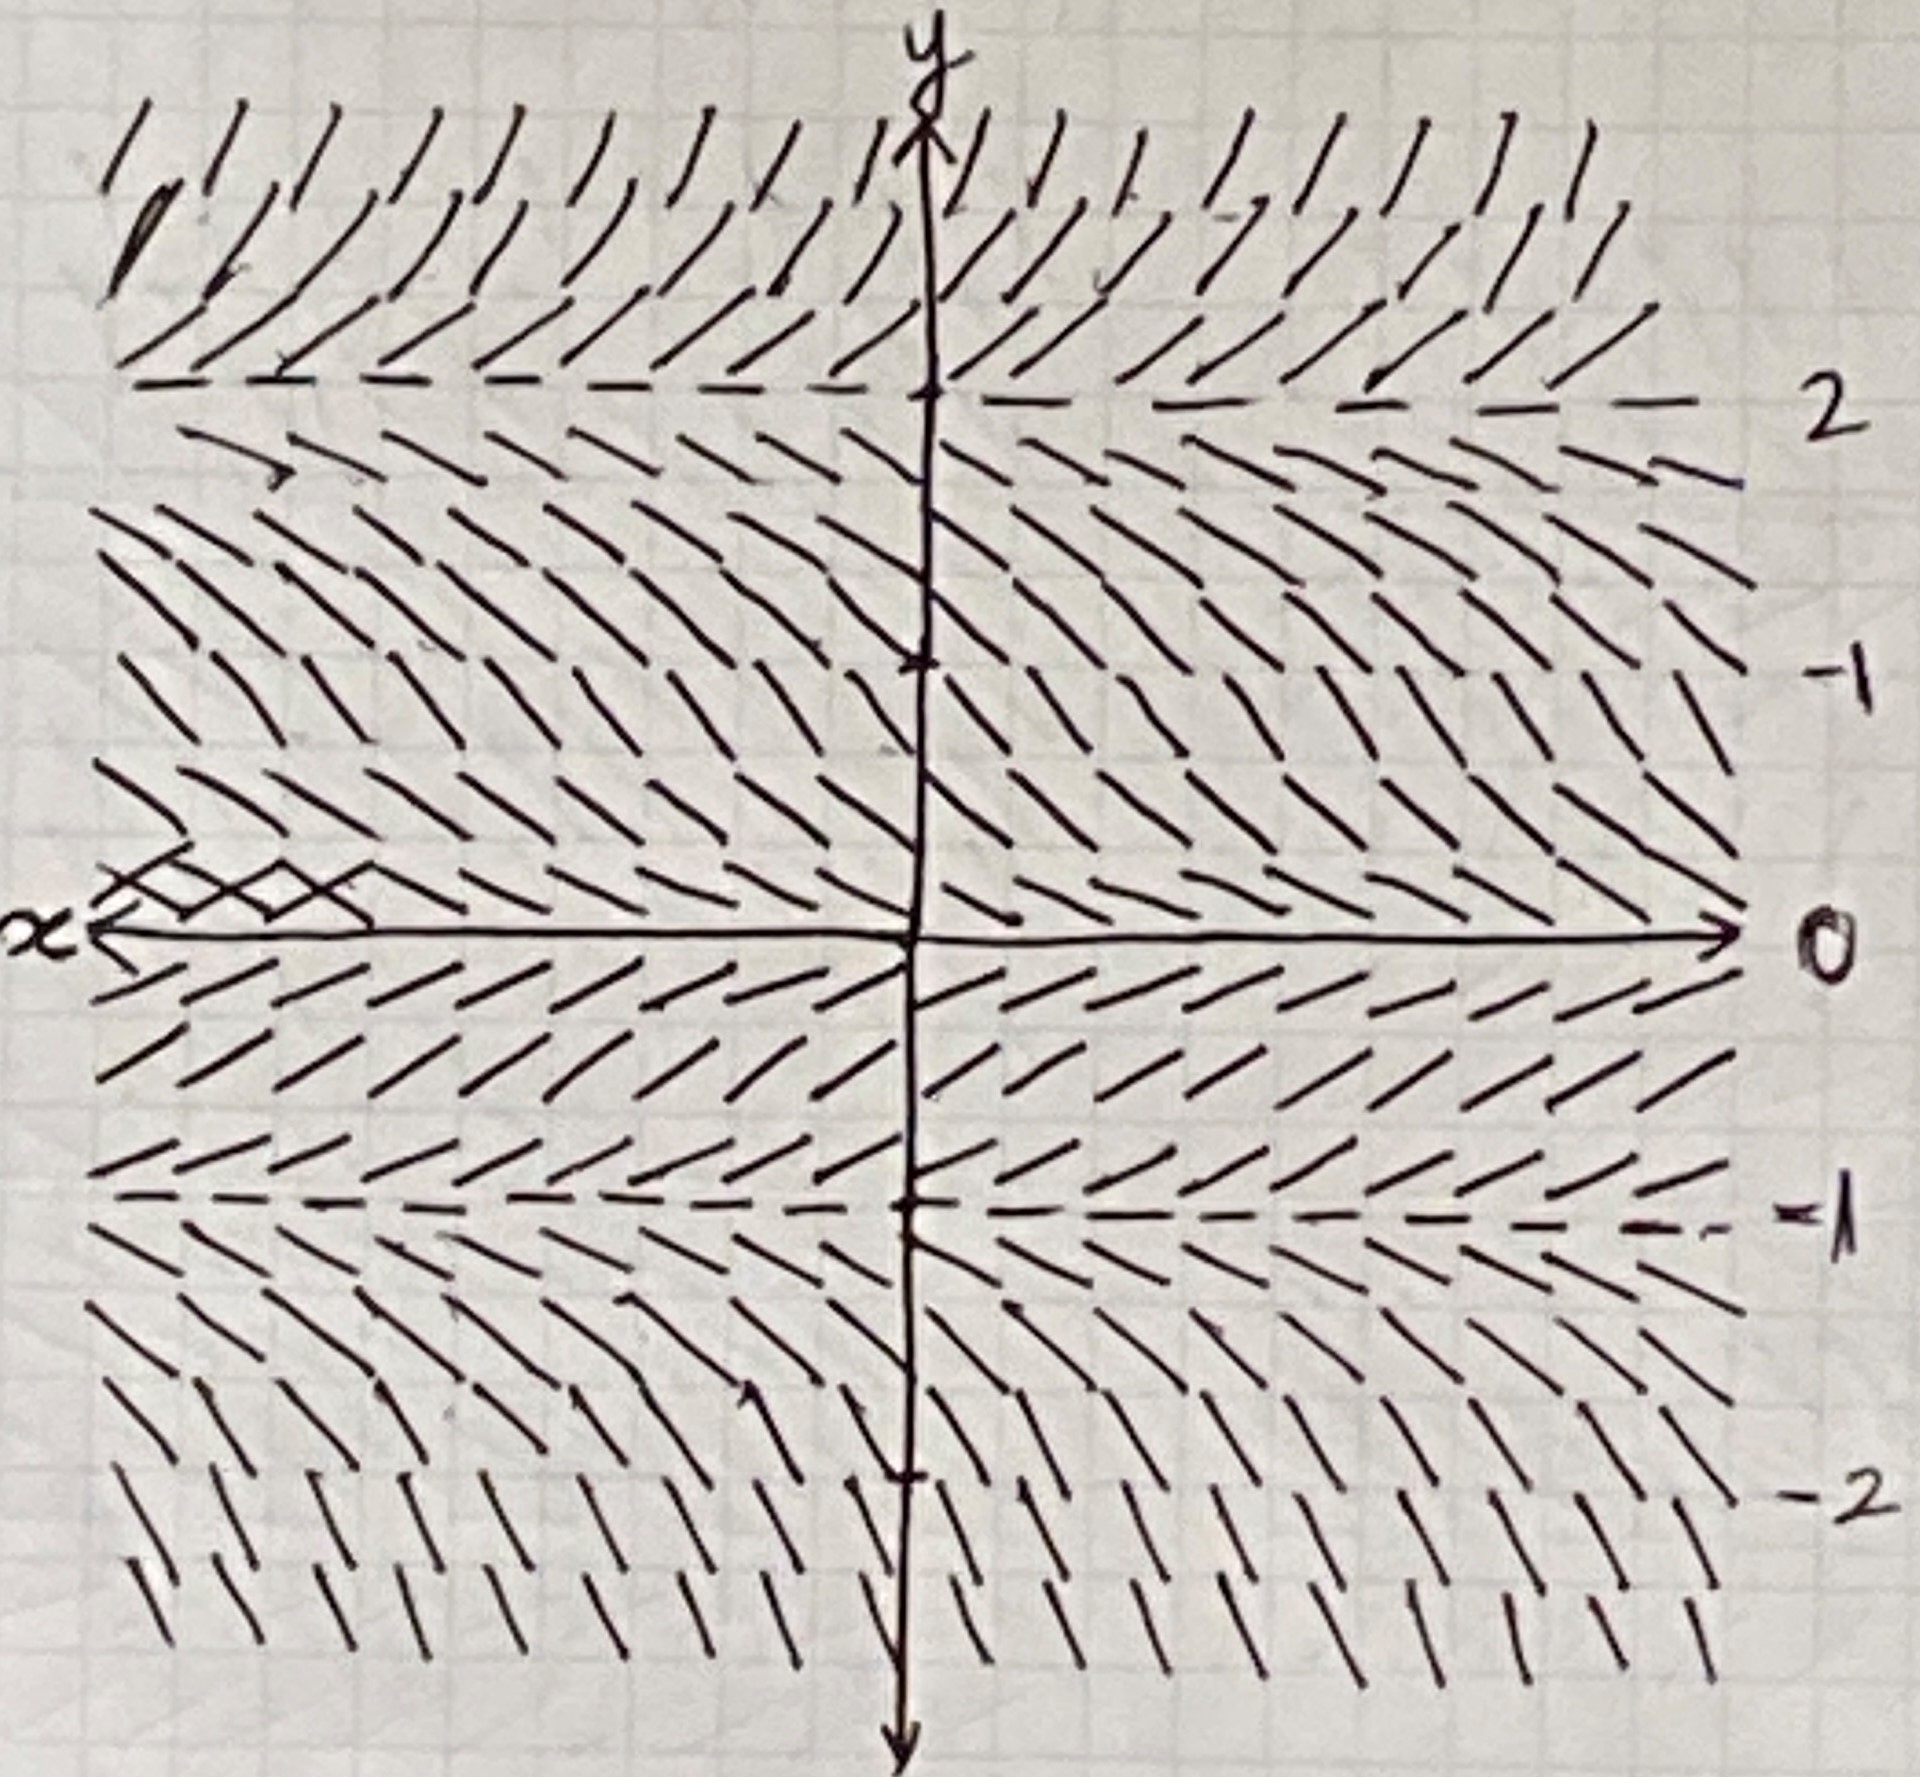 y
2
-1
x 0
-1
-2